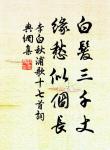 白髮三千丈
緣愁似個長
李白秋浦歌十七首詞
典網集